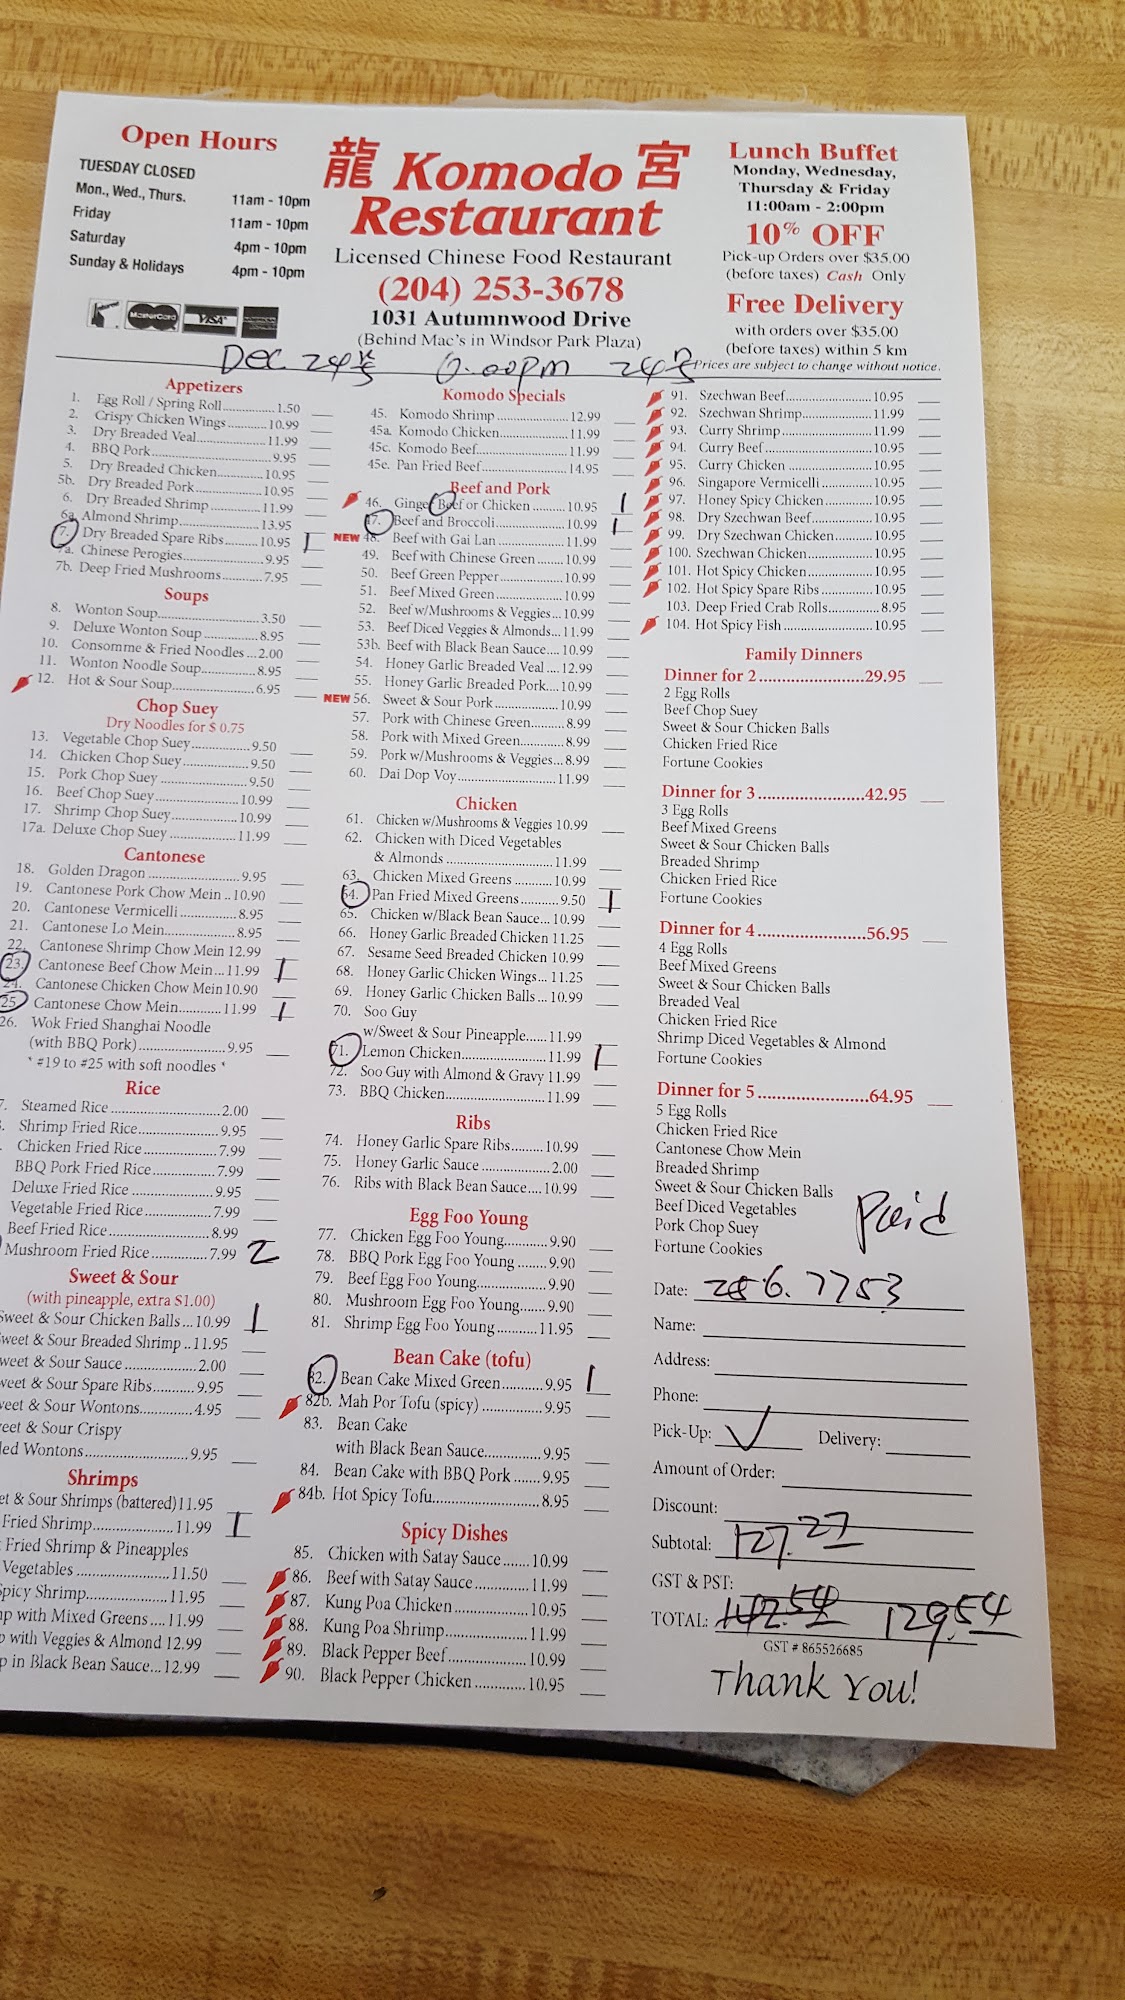 Open Hours
TUESDAY CLOSED
Mon., Wed., Thurs. 11am - 10pm
Friday 11am - 10pm
Saturday 4pm - 10pm
Sunday & Holidays 4pm - 10pm
MasterCard VISA
龍 Komodo 宮
Restaurant
Licensed Chinese Food Restaurant
(204) 253-3678
1031 Autumnwood Drive
(Behind Mac's in Windsor Park Plaza)
Lunch Buffet
Monday, Wednesday,
Thursday & Friday
11:00am - 2:00pm
10% OFF
Pick-up Orders over $35.00
(before taxes) Cash Only
Free Delivery
with orders over $35.00
(before taxes) within 5 km
Prices are subject to change without notice.
Dec 24
Appetizers
1. Egg Roll / Spring Roll 1.50
2. Crispy Chicken Wings 10.99
3. Dry Breaded Veal 11.99
4. BBQ Pork 9.95
5. Dry Breaded Chicken 10.95
5b. Dry Breaded Pork 10.95
6. Dry Breaded Shrimp 11.99
6a. Almond Shrimp 13.95
7. Dry Breaded Spare Ribs 10.95 1
7a. Chinese Perogies 9.95
7b. Deep Fried Mushrooms 7.95
Soups
8. Wonton Soup 3.50
9. Deluxe Wonton Soup 8.95
10. Consomme & Fried Noodles 2.00
11. Wonton Noodle Soup 8.95
12. Hot & Sour Soup 6.95
Chop Suey
Dry Noodles for $ 0.75
13. Vegetable Chop Suey 9.50
14. Chicken Chop Suey 9.50
15. Pork Chop Suey 9.50
16. Beef Chop Suey 10.99
17. Shrimp Chop Suey 10.99
17a. Deluxe Chop Suey 11.99
Cantonese
18. Golden Dragon 9.95
19. Cantonese Pork Chow Mein 10.90
20. Cantonese Vermicelli 8.95
21. Cantonese Lo Mein 8.95
22. Cantonese Shrimp Chow Mein 12.99
23. Cantonese Beef Chow Mein 11.99 1
24. Cantonese Chicken Chow Mein 10.90
25. Cantonese Chow Mein 11.99 1
26. Wok Fried Shanghai Noodle
(with BBQ Pork) 9.95
* #19 to #25 with soft noodles *
Rice
7. Steamed Rice 2.00
Shrimp Fried Rice 9.95
Chicken Fried Rice 7.99
BBQ Pork Fried Rice 7.99
Deluxe Fried Rice 9.95
Vegetable Fried Rice 7.99
Beef Fried Rice 8.99
Mushroom Fried Rice 7.99 2
Sweet & Sour
(with pineapple, extra $1.00)
Sweet & Sour Chicken Balls 10.99 1
weet & Sour Breaded Shrimp 11.95
weet & Sour Sauce 2.00
weet & Sour Spare Ribs 9.95
veet & Sour Wontons 4.95
eet & Sour Crispy
led Wontons 9.95
Shrimps
et & Sour Shrimps (battered) 11.95
Fried Shrimp 11.99 1
Fried Shrimp & Pineapples
Vegetables 11.50
picy Shrimp 11.95
np with Mixed Greens 11.99
p with Veggies & Almond 12.99
p in Black Bean Sauce 12.99
Komodo Specials
45. Komodo Shrimp 12.99
45a. Komodo Chicken 11.99
45c. Komodo Beef 11.99
45e. Pan Fried Beef 14.95
Beef and Pork
46. Ginger Beef or Chicken 10.95 1
47. Beef and Broccoli 10.99 1
NEW 48. Beef with Gai Lan 11.99
49. Beef with Chinese Green 10.99
50. Beef Green Pepper 10.99
51. Beef Mixed Green 10.99
52. Beef w/Mushrooms & Veggies 10.99
53. Beef Diced Veggies & Almonds 11.99
53b. Beef with Black Bean Sauce 10.99
54. Honey Garlic Breaded Veal 12.99
55. Honey Garlic Breaded Pork 10.99
NEW 56. Sweet & Sour Pork 10.99
57. Pork with Chinese Green 8.99
58. Pork with Mixed Green 8.99
59. Pork w/Mushrooms & Veggies 8.99
60. Dai Dop Voy 11.99
Chicken
61. Chicken w/Mushrooms & Veggies 10.99
62. Chicken with Diced Vegetables
& Almonds 11.99
63. Chicken Mixed Greens 10.99
64. Pan Fried Mixed Greens 9.50 1
65. Chicken w/Black Bean Sauce 10.99
66. Honey Garlic Breaded Chicken 11.25
67. Sesame Seed Breaded Chicken 10.99
68. Honey Garlic Chicken Wings 11.25
69. Honey Garlic Chicken Balls 10.99
70. Soo Guy
w/Sweet & Sour Pineapple 11.99
71. Lemon Chicken 11.99 1
72. Soo Guy with Almond & Gravy 11.99
73. BBQ Chicken 11.99
Ribs
74. Honey Garlic Spare Ribs 10.99
75. Honey Garlic Sauce 2.00
76. Ribs with Black Bean Sauce 10.99
Egg Foo Young
77. Chicken Egg Foo Young 9.90
78. BBQ Pork Egg Foo Young 9.90
79. Beef Egg Foo Young 9.90
80. Mushroom Egg Foo Young 9.90
81. Shrimp Egg Foo Young 11.95
Bean Cake (tofu)
82. Bean Cake Mixed Green 9.95 1
82b. Mah Por Tofu (spicy) 9.95
83. Bean Cake
with Black Bean Sauce 9.95
84. Bean Cake with BBQ Pork 9.95
84b. Hot Spicy Tofu 8.95
Spicy Dishes
85. Chicken with Satay Sauce 10.99
86. Beef with Satay Sauce 11.99
87. Kung Poa Chicken 10.95
88. Kung Poa Shrimp 11.99
89. Black Pepper Beef 10.99
90. Black Pepper Chicken 10.95
91. Szechwan Beef 10.95
92. Szechwan Shrimp 11.99
93. Curry Shrimp 11.99
94. Curry Beef 10.95
95. Curry Chicken 10.95
96. Singapore Vermicelli 10.95
97. Honey Spicy Chicken 10.95
98. Dry Szechwan Beef 10.95
99. Dry Szechwan Chicken 10.95
100. Szechwan Chicken 10.95
101. Hot Spicy Chicken 10.95
102. Hot Spicy Spare Ribs 10.95
103. Deep Fried Crab Rolls 8.95
104. Hot Spicy Fish 10.95
Family Dinners
Dinner for 2 29.95
2 Egg Rolls
Beef Chop Suey
Sweet & Sour Chicken Balls
Chicken Fried Rice
Fortune Cookies
Dinner for 3 42.95
3 Egg Rolls
Beef Mixed Greens
Sweet & Sour Chicken Balls
Breaded Shrimp
Chicken Fried Rice
Fortune Cookies
Dinner for 4 56.95
4 Egg Rolls
Beef Mixed Greens
Sweet & Sour Chicken Balls
Breaded Veal
Chicken Fried Rice
Shrimp Diced Vegetables & Almond
Fortune Cookies
Dinner for 5 64.95
5 Egg Rolls
Chicken Fried Rice
Cantonese Chow Mein
Breaded Shrimp
Sweet & Sour Chicken Balls
Beef Diced Vegetables
Pork Chop Suey
Fortune Cookies
Paid
Date: 256.7753
Name:
Address:
Phone:
Pick-Up: ✓ Delivery:
Amount of Order:
Discount:
Subtotal: 127.27
GST & PST:
TOTAL: 142.54 129.54
GST # 865526685
Thank You!